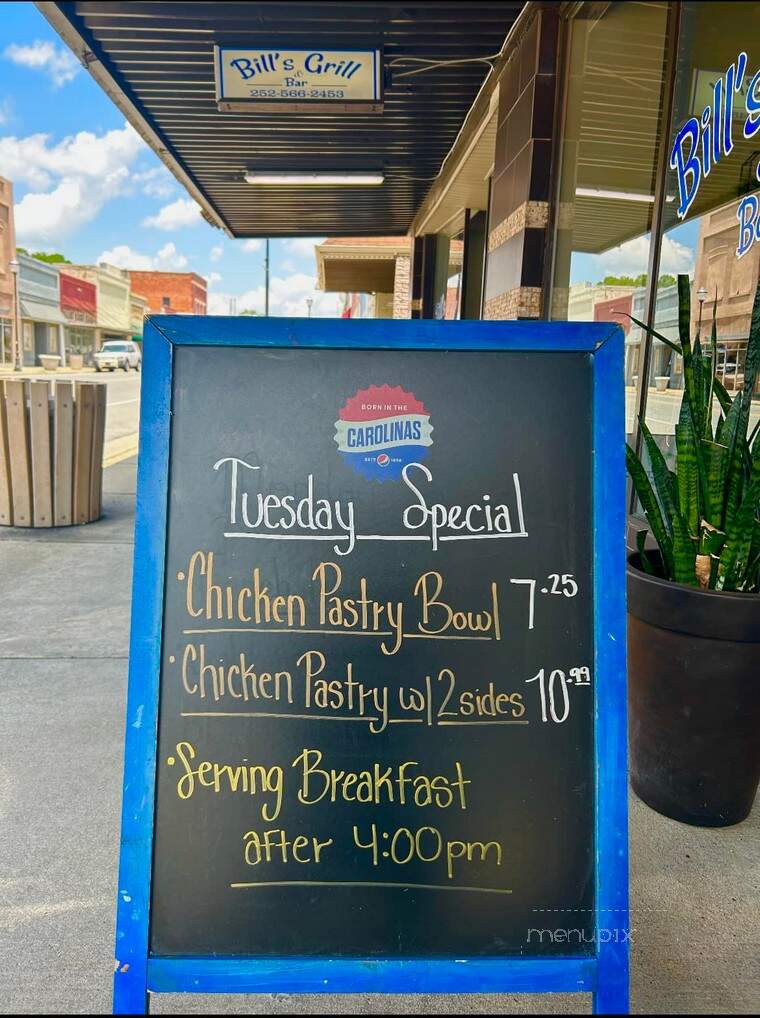 Bill's Grill
&
Bar
252-566-2453
Bill's
BORN IN THE
CAROLINAS
ESTD 1898
Tuesday Special
·Chicken Pastry Bowl 7.25
·Chicken Pastry w/2 sides 10.99
·Serving Breakfast
after 4:00pm
menupix